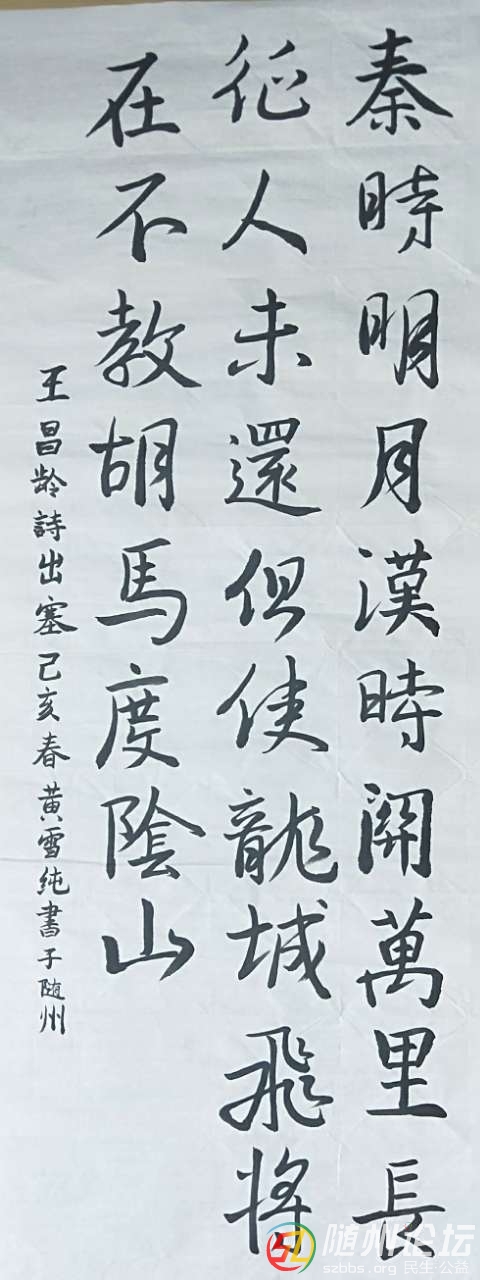 秦時明月漢時關萬里長
征人未還但使龍城飛將
在不教胡馬度陰山
王昌龄詩出塞己亥春黄雪纯書于随州
随州论坛
szbbs.org 民生·公益